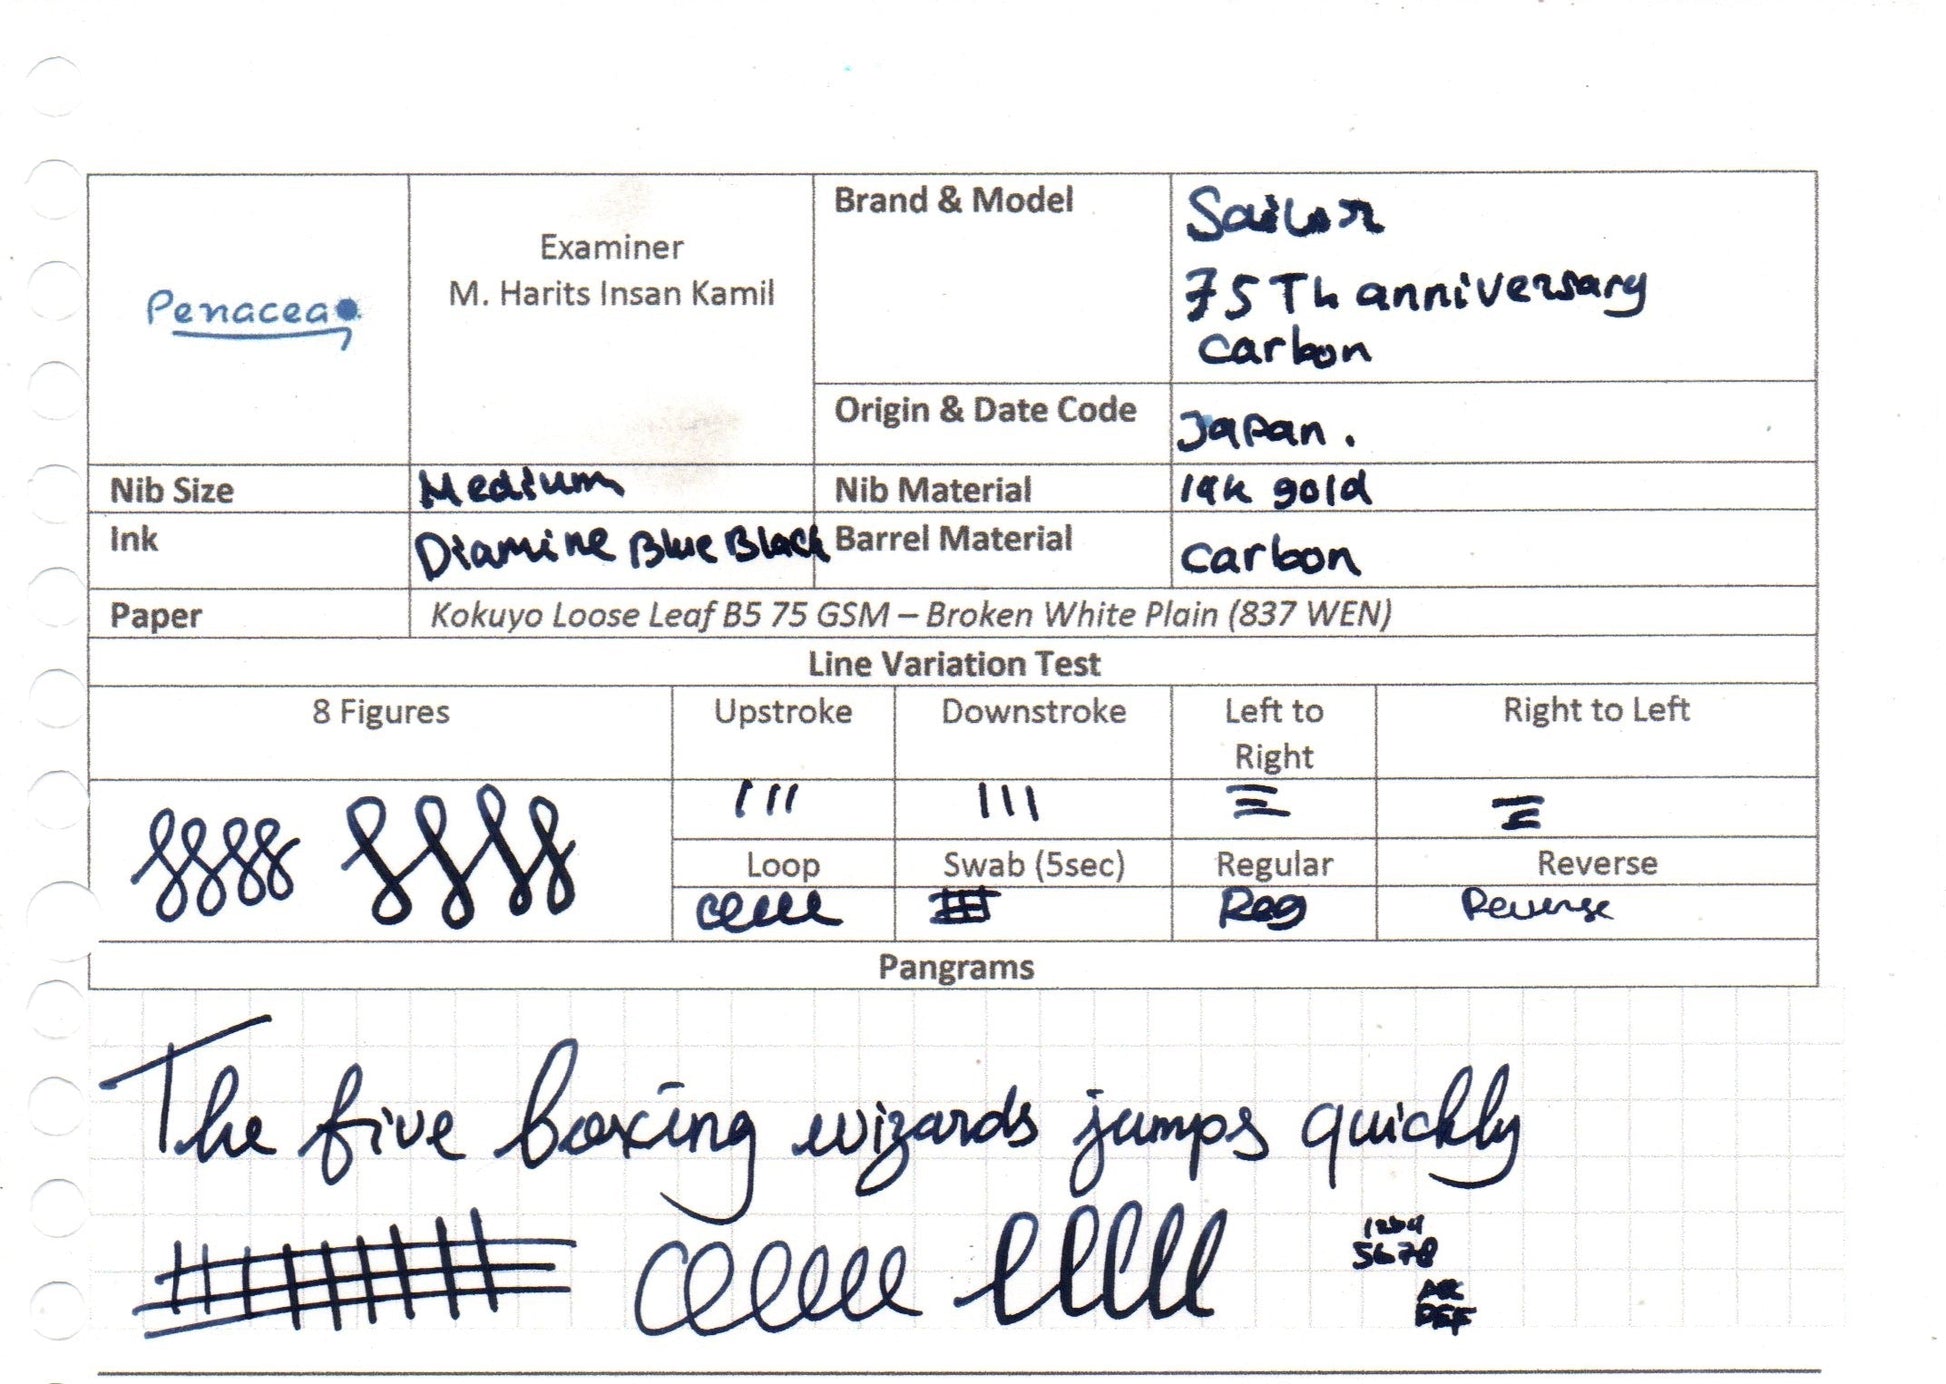 Penacea
Examiner
M. Harits Insan Kamil
Brand & Model
Sailor
75 Th anniversary
carbon
Origin & Date Code
Japan.
Nib Size
Medium
Nib Material
14k gold
Ink
Diamine Blue Black
Barrel Material
carbon
Paper
Kokuyo Loose Leaf B5 75 GSM – Broken White Plain (837 WEN)
Line Variation Test
8 Figures
Upstroke
Downstroke
Left to
Right
Right to Left
Loop
Swab (5sec)
Regular
Reverse
Reg
Reverse
Pangrams
The five boxing wizards jumps quickly
1234
5678
ABC
DEF